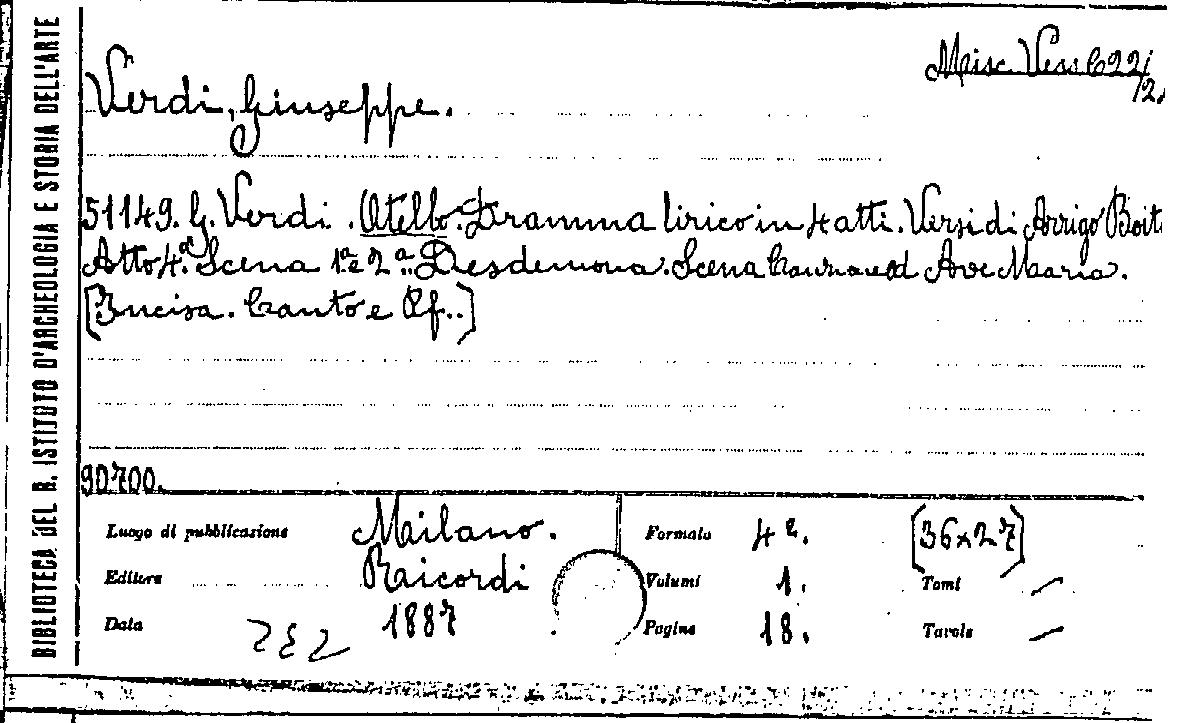 BIBLIOTECA DEL R. ISTITUTO D'ARCHEOLOGIA E STORIA DELL'ARTE
Misc. Vess C22/
/2.
Verdi, Giuseppe.
51149. G. Verdi. Otello. Dramma lirico in 4 atti. Versi di Arrigo Boit
Atto 4.º Scena 1ª e 2ª. Desdemona. Scena ed Ave Maria.
[Incisa. Canto e Pf..]
90700.
Luogo di pubblicazione Milano. Formato 4º. [36x27]
Editore Ricordi Volumi 1. Tomi —
Data 1887 Pagine 18. Tavole —